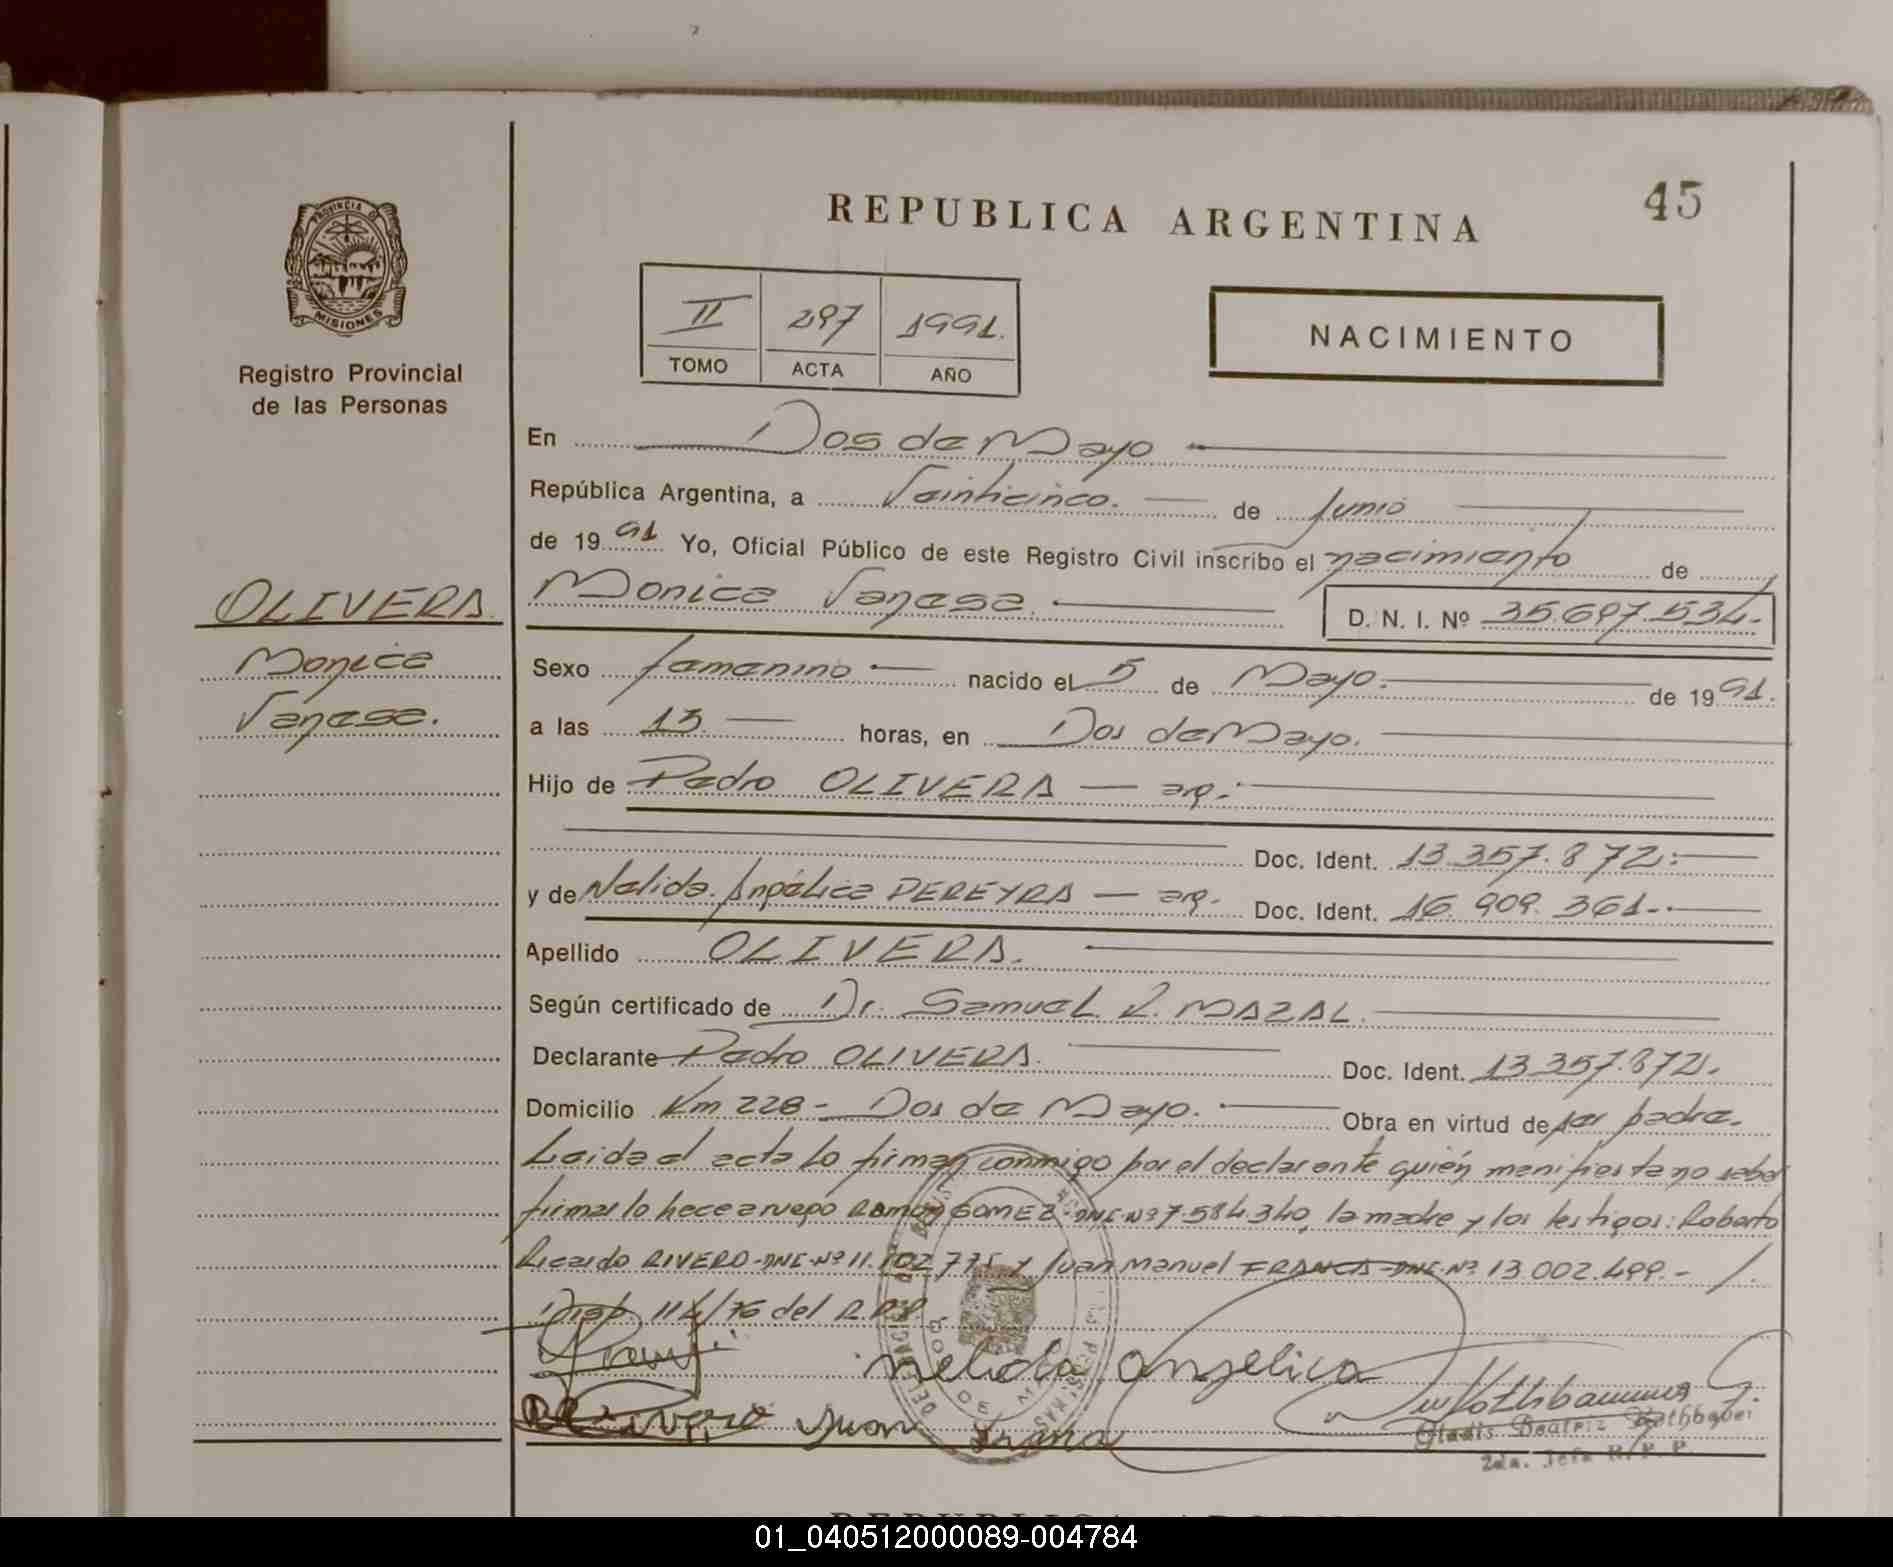 REPUBLICA ARGENTINA
45
PROVINCIA D
MISIONES
Registro Provincial
de las Personas
II 297 1991.
TOMO ACTA AÑO
NACIMIENTO
En Dos de Mayo
República Argentina, a Veinticinco. de Junio
de 19 91 Yo, Oficial Público de este Registro Civil inscribo el nacimiento de
Monica Vanesa. D. N. I. Nº 35.697.534.-
OLIVERA.
Monica
Vanesa.
Sexo femenino nacido el 5 de Mayo. de 19 91.
a las 13 horas, en Dos de Mayo.
Hijo de Pedro OLIVERA — arg.
Doc. Ident. 13.357.872.
y de Nelida Angélica PEREYRA — arg. Doc. Ident. 16.909.361.-
Apellido OLIVERA.
Según certificado de Dr. Samuel R. MAZAL.
Declarante Pedro OLIVERA. Doc. Ident. 13.357.872.
Domicilio Km 228 - Dos de Mayo. Obra en virtud de ser padre.
Leida el acta lo firman conmigo por el declarante quién manifiesta no saber
firmar lo hece a ruego Ramon GOMEZ-DNI-Nº 7.584.340, la madre y los testigos: Roberto
Ricardo RIVERO-DNI-Nº 11.102.775 y Juan Manuel FRANCA-DNI-Nº 13.002.499.-
Disp. 114/76 del R.P.P.
Nelida Angelica
Rivero Juan Frana
Gladis Beatriz
2da. Jefa R.P.P.
REPUBLICA
01_040512000089-004784